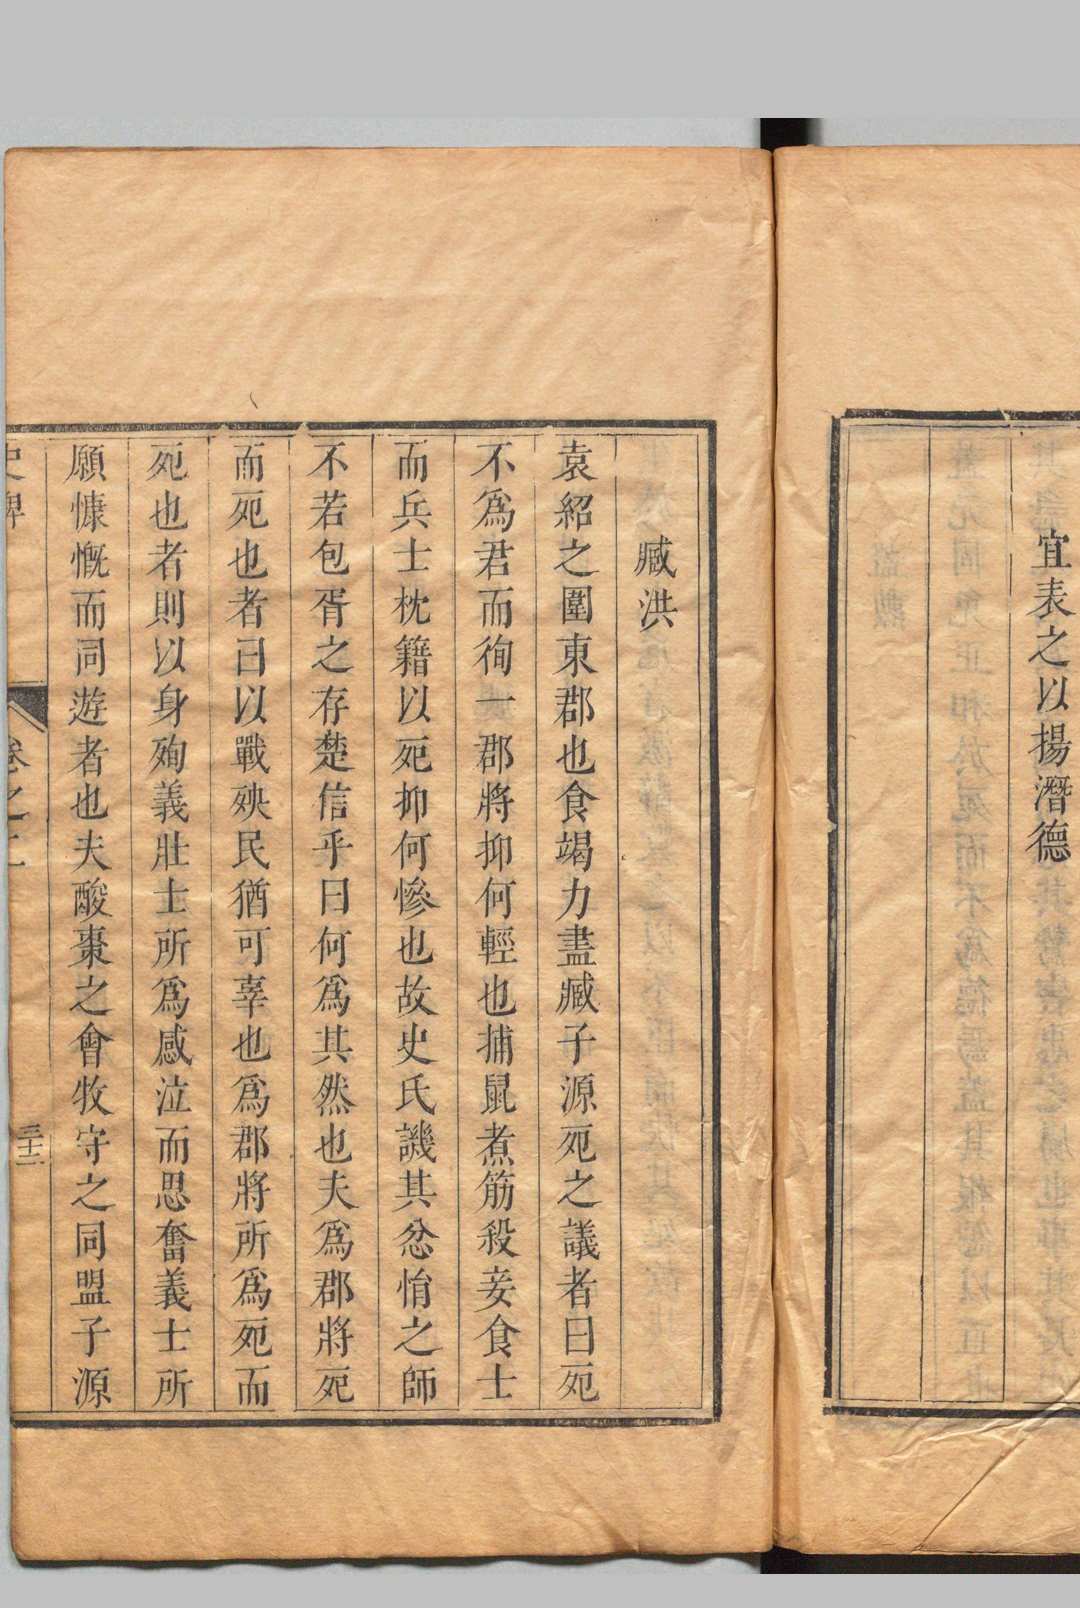 宜表之以揚潛德
臧洪
袁紹之圍東郡也食竭力盡臧子源死之議者曰死
不爲君而徇一郡將抑何輕也捕鼠煮筋殺妾食士
而兵士枕籍以死抑何慘也故史氏譏其忿悁之師
不若包胥之存楚信乎曰何爲其然也夫爲郡將死
而死也者曰以戰殃民猶可辜也爲郡將所爲死而
死也者則以身殉義壯士所爲感泣而思奮義士所
願慷慨而同遊者也夫酸棗之會牧守之同盟子源
卷之二
三十二